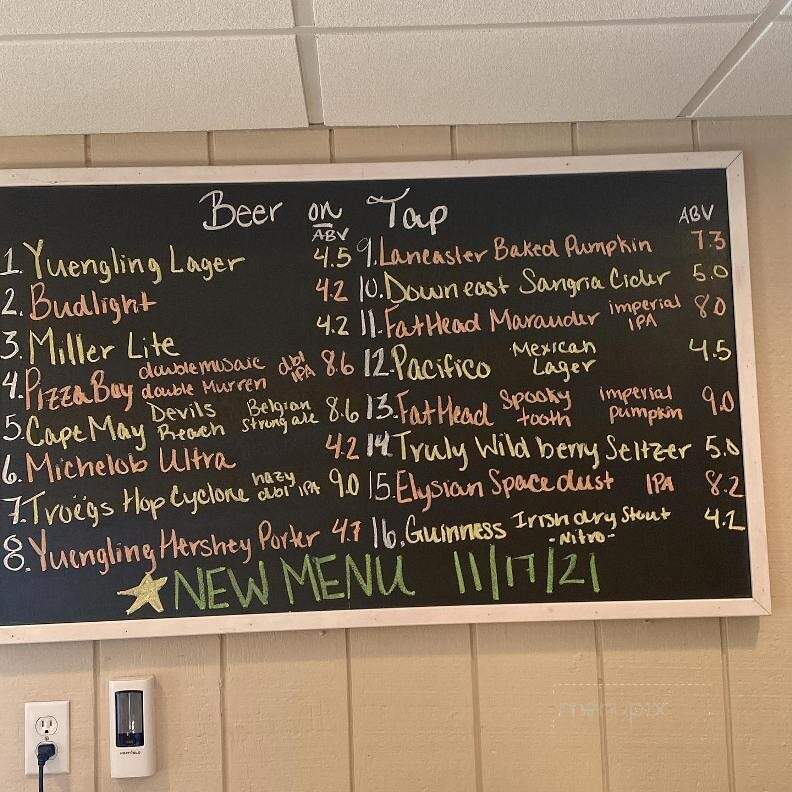 Beer on Tap
ABV
ABV
1. Yuengling Lager 4.5
2. Budlight 4.2
3. Miller Lite 4.2
4. Pizza Boy double mosaic dbl 8.6
double Murren IPA
5. Cape May Devils Belgian 8.6
Reach strong ale
6. Michelob Ultra 4.2
7. Troëgs Hop Cyclone hazy 9.0
dbl IPA
8. Yuengling Hershey Porter 4.7
9. Lancaster Baked Pumpkin 7.3
10. Downeast Sangria Cider 5.0
11. FatHead Marauder imperial 8.0
IPA
12. Pacifico Mexican 4.5
Lager
13. FatHead Spooky imperial 9.0
tooth pumpkin
14. Truly Wild berry Seltzer 5.0
15. Elysian Space dust IPA 8.2
16. Guinness Irish dry Stout 4.2
-Nitro-
NEW MENU 11/17/21
menupix